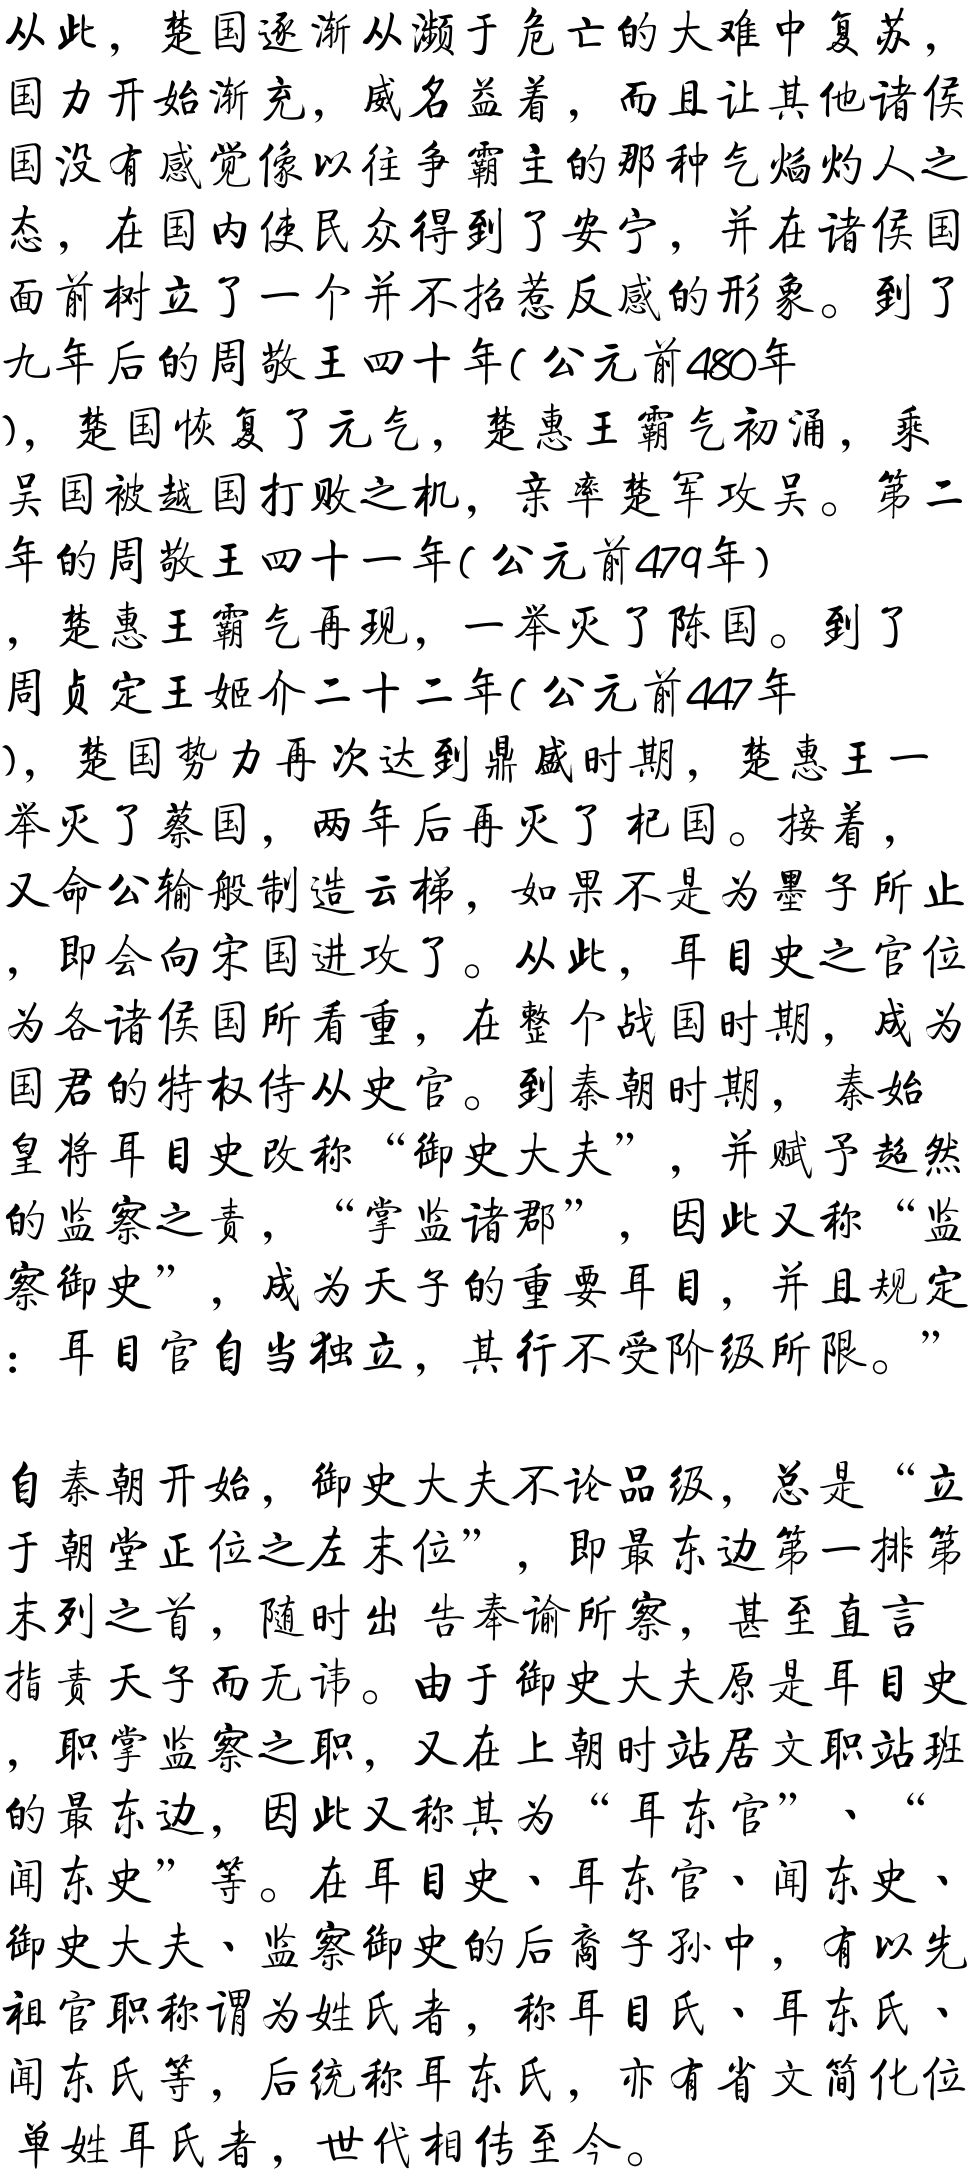 从此，楚国逐渐从濒于危亡的大难中复苏，
国力开始渐充，威名益着，而且让其他诸侯
国没有感觉像以往争霸主的那种气焰灼人之
态，在国内使民众得到了安宁，并在诸侯国
面前树立了一个并不招惹反感的形象。到了
九年后的周敬王四十年(公元前480年
)，楚国恢复了元气，楚惠王霸气初涌，乘
吴国被越国打败之机，亲率楚军攻吴。第二
年的周敬王四十一年(公元前479年)
，楚惠王霸气再现，一举灭了陈国。到了
周贞定王姬介二十二年(公元前447年
)，楚国势力再次达到鼎盛时期，楚惠王一
举灭了蔡国，两年后再灭了杞国。接着，
又命公输般制造云梯，如果不是为墨子所止
，即会向宋国进攻了。从此，耳目史之官位
为各诸侯国所看重，在整个战国时期，成为
国君的特权侍从史官。到秦朝时期， 秦始
皇将耳目史改称“御史大夫”，并赋予超然
的监察之责，“掌监诸郡”，因此又称“监
察御史”，成为天子的重要耳目，并且规定
：耳目官自当独立，其行不受阶级所限。”
自秦朝开始，御史大夫不论品级，总是“立
于朝堂正位之左末位”，即最东边第一排第
末列之首，随时出 告奉谕所察，甚至直言
指责天子而无讳。由于御史大夫原是耳目史
，职掌监察之职，又在上朝时站居文职站班
的最东边，因此又称其为“耳东官”、“
闻东史”等。在耳目史、耳东官、闻东史、
御史大夫、监察御史的后裔子孙中，有以先
祖官职称谓为姓氏者，称耳目氏、耳东氏、
闻东氏等，后统称耳东氏，亦有省文简化位
单姓耳氏者，世代相传至今。